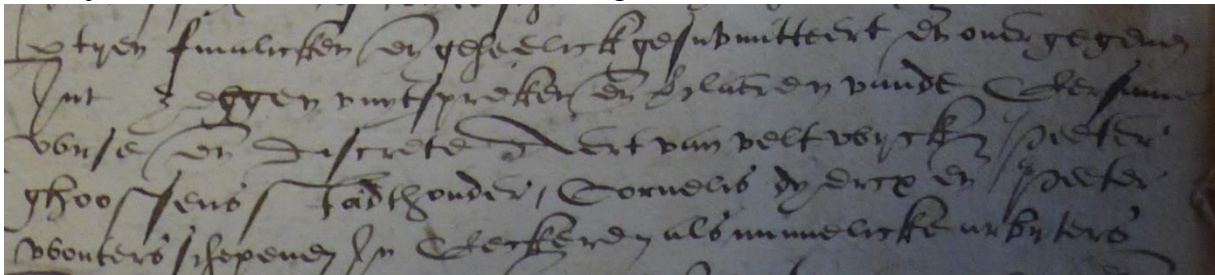 ptyen finalicken en geheelick gesubmitteert en overgegeven
Int zeggen vuytspreken en verclaeren vande Eersame
wyse en discrete Aert van veltwyck Peeter
ghoossens stadthouder, Cornelis dyercx en Peeter
wouters schepenen In Eeckeren als minnelicke arbiters